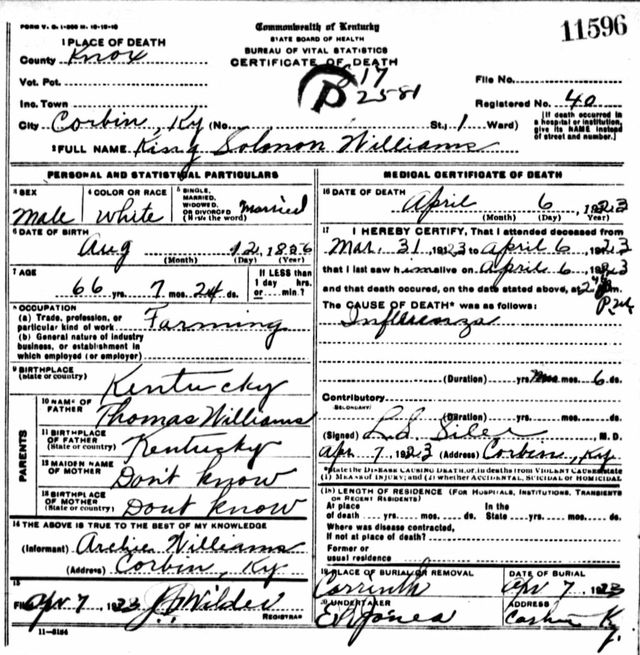 FORM V. S. 1-
Commonwealth of Kentucky
STATE BOARD OF HEALTH
BUREAU OF VITAL STATISTICS
CERTIFICATE OF DEATH
11596
1 PLACE OF DEATH
County Knox
Vot. Pct.
Inc. Town
P
2581
File No.
Registered No. 40
City Corbin, Ky (No. St.; 1 Ward)
[If death occurred in a hospital or institution, give its NAME instead of street and number.]
2 FULL NAME King Solomon Williams
PERSONAL AND STATISTICAL PARTICULARS
3 SEX
Male
4 COLOR OR RACE
White
5 SINGLE, MARRIED, WIDOWED, OR DIVORCED (Write the word)
Married
6 DATE OF BIRTH
Aug 12, 1856
(Month) (Day) (Year)
7 AGE
66 yrs. 7 mos. 24 ds.
If LESS than 1 day hrs. or min.?
8 OCCUPATION
(a) Trade, profession, or particular kind of work Farming
(b) General nature of industry business, or establishment in which employed (or employer)
9 BIRTHPLACE (State or country)
Kentucky
PARENTS
10 NAME OF FATHER
Thomas Williams
11 BIRTHPLACE OF FATHER (State or country)
Kentucky
12 MAIDEN NAME OF MOTHER
Don't know
13 BIRTHPLACE OF MOTHER (State or country)
Dont know
14 THE ABOVE IS TRUE TO THE BEST OF MY KNOWLEDGE
(Informant) Archie Williams
(Address) Corbin, Ky
15
Filed Apr 7 1923 Wilder
REGISTRAR
11-3184
MEDICAL CERTIFICATE OF DEATH
16 DATE OF DEATH
April 6, 1923
(Month) (Day) (Year)
17 I HEREBY CERTIFY, That I attended deceased from
Mar. 31, 1923 to April 6, 1923
that I last saw him alive on April 6, 1923
and that death occured, on the date stated above, at 2 P.M.
The CAUSE OF DEATH* was as follows:
Influenza
(Duration) yrs. mos. 6 ds.
Contributory
(SECONDARY)
(Duration) yrs. mos. ds.
(Signed) L.S. Siler M.D.
Apr. 7, 1923 (Address) Corbin, Ky
*State the DISEASE CAUSING DEATH, or, in deaths from VIOLENT CAUSES state (1) MEANS OF INJURY; and (2) whether ACCIDENTAL, SUICIDAL or HOMICIDAL
18 LENGTH OF RESIDENCE (FOR HOSPITALS, INSTITUTIONS, TRANSIENTS OR RECENT RESIDENTS)
At place of death yrs. mos. ds. In the State yrs. mos. ds.
Where was disease contracted,
If not at place of death?
Former or usual residence
19 PLACE OF BURIAL OR REMOVAL
Corrinth
DATE OF BURIAL
Apr 7, 1923
20 UNDERTAKER
Jones
ADDRESS
Ky.